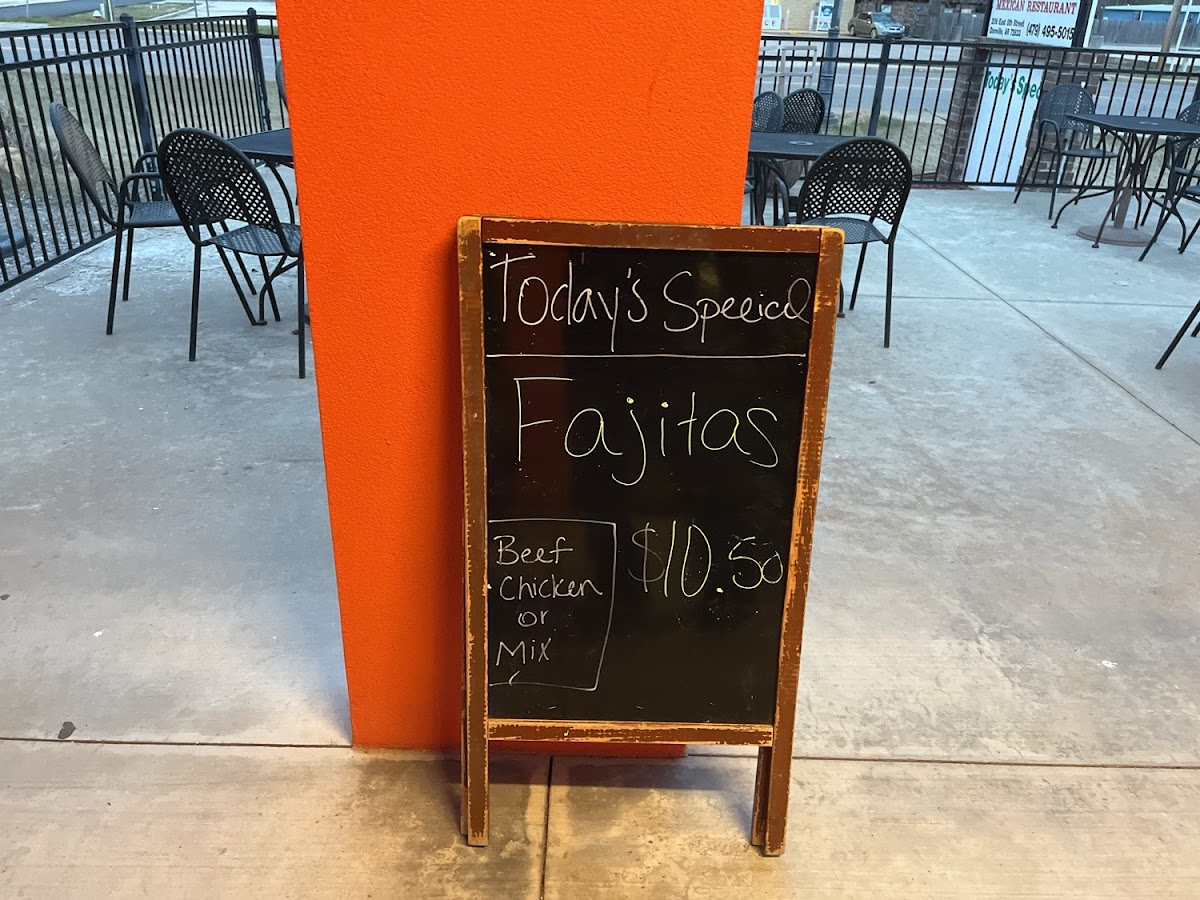 MEXICAN RESTAURANT
Danville, AR 72833
(479) 495-5015
Today's Spec
Today's Speeical
Fajitas
Beef
Chicken
or
Mix
$10.50